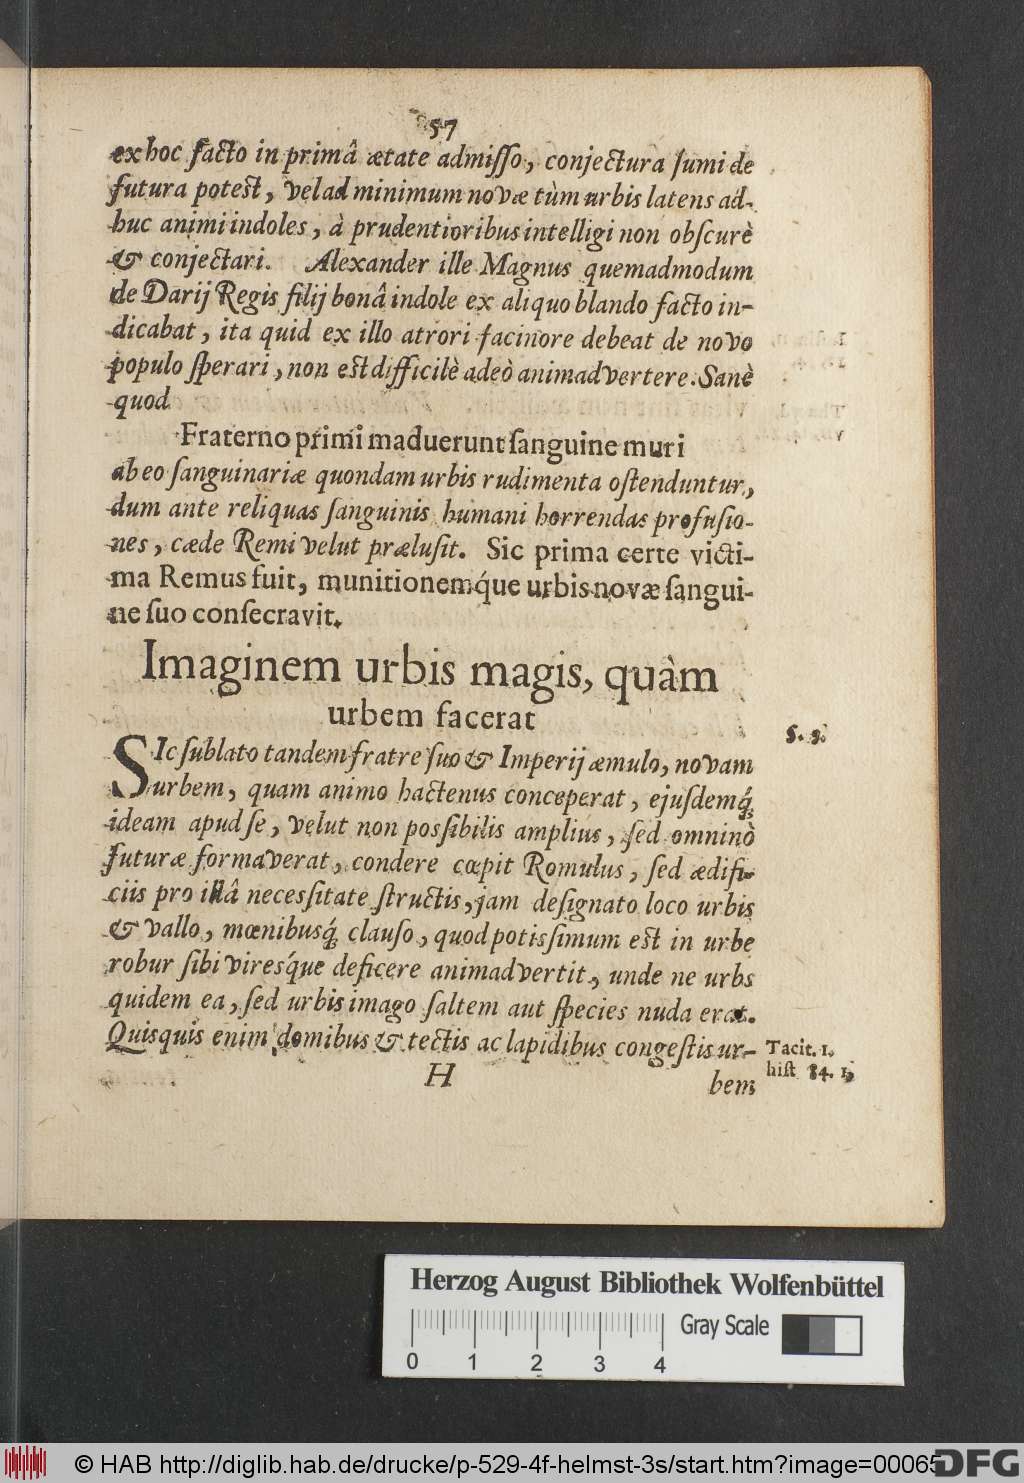 57
ex hoc facto in primâ ætate admisso, conjectura sumi de
futura potest, vel ad minimum novæ tùm urbis latens ad-
huc animi indoles, à prudentioribus intelligi non obscurè
& conjectari. Alexander ille Magnus quemadmodum
de Darij Regis filij bonâ indole ex aliquo blando facto in-
dicabat, ita quid ex illo atrori facinore debeat de novo
populo sperari, non est difficilè adeò animadvertere. Sanè
quod
Fraterno primi maduerunt sanguine muri
ab eo sanguinariæ quondam urbis rudimenta ostenduntur,
dum ante reliquas sanguinis humani horrendas profusio-
nes, cæde Remi velut prælusit. Sic prima certe victi-
ma Remus fuit, munitionemq́ue urbis novæ sangui-
ne suo consecravit.
Imaginem urbis magis, quàm
urbem facerat
SIc sublato tandem fratre suo & Imperij æmulo, novam
urbem, quam animo hactenus conceperat, ejusdemq́;
ideam apud se, velut non possibilis amplius, sed omninò
futuræ formaverat, condere cœpit Romulus, sed ædifi-
ciis pro illâ necessitate structis, jam designato loco urbis
& vallo, mœnibusq́; clauso, quod potissimum est in urbe
robur sibi viresq́ue deficere animadvertit, unde ne urbs
quidem ea, sed urbis imago saltem aut species nuda erat.
Quisquis enim domibus & tectis ac lapidibus congestis ur-
H
bem
Tacit. 1.
hist 84. 1.
© HAB http://diglib.hab.de/drucke/p-529-4f-helmst-3s/start.htm?image=00065
DFG
Herzog August Bibliothek Wolfenbüttel
Gray Scale
0 1 2 3 4